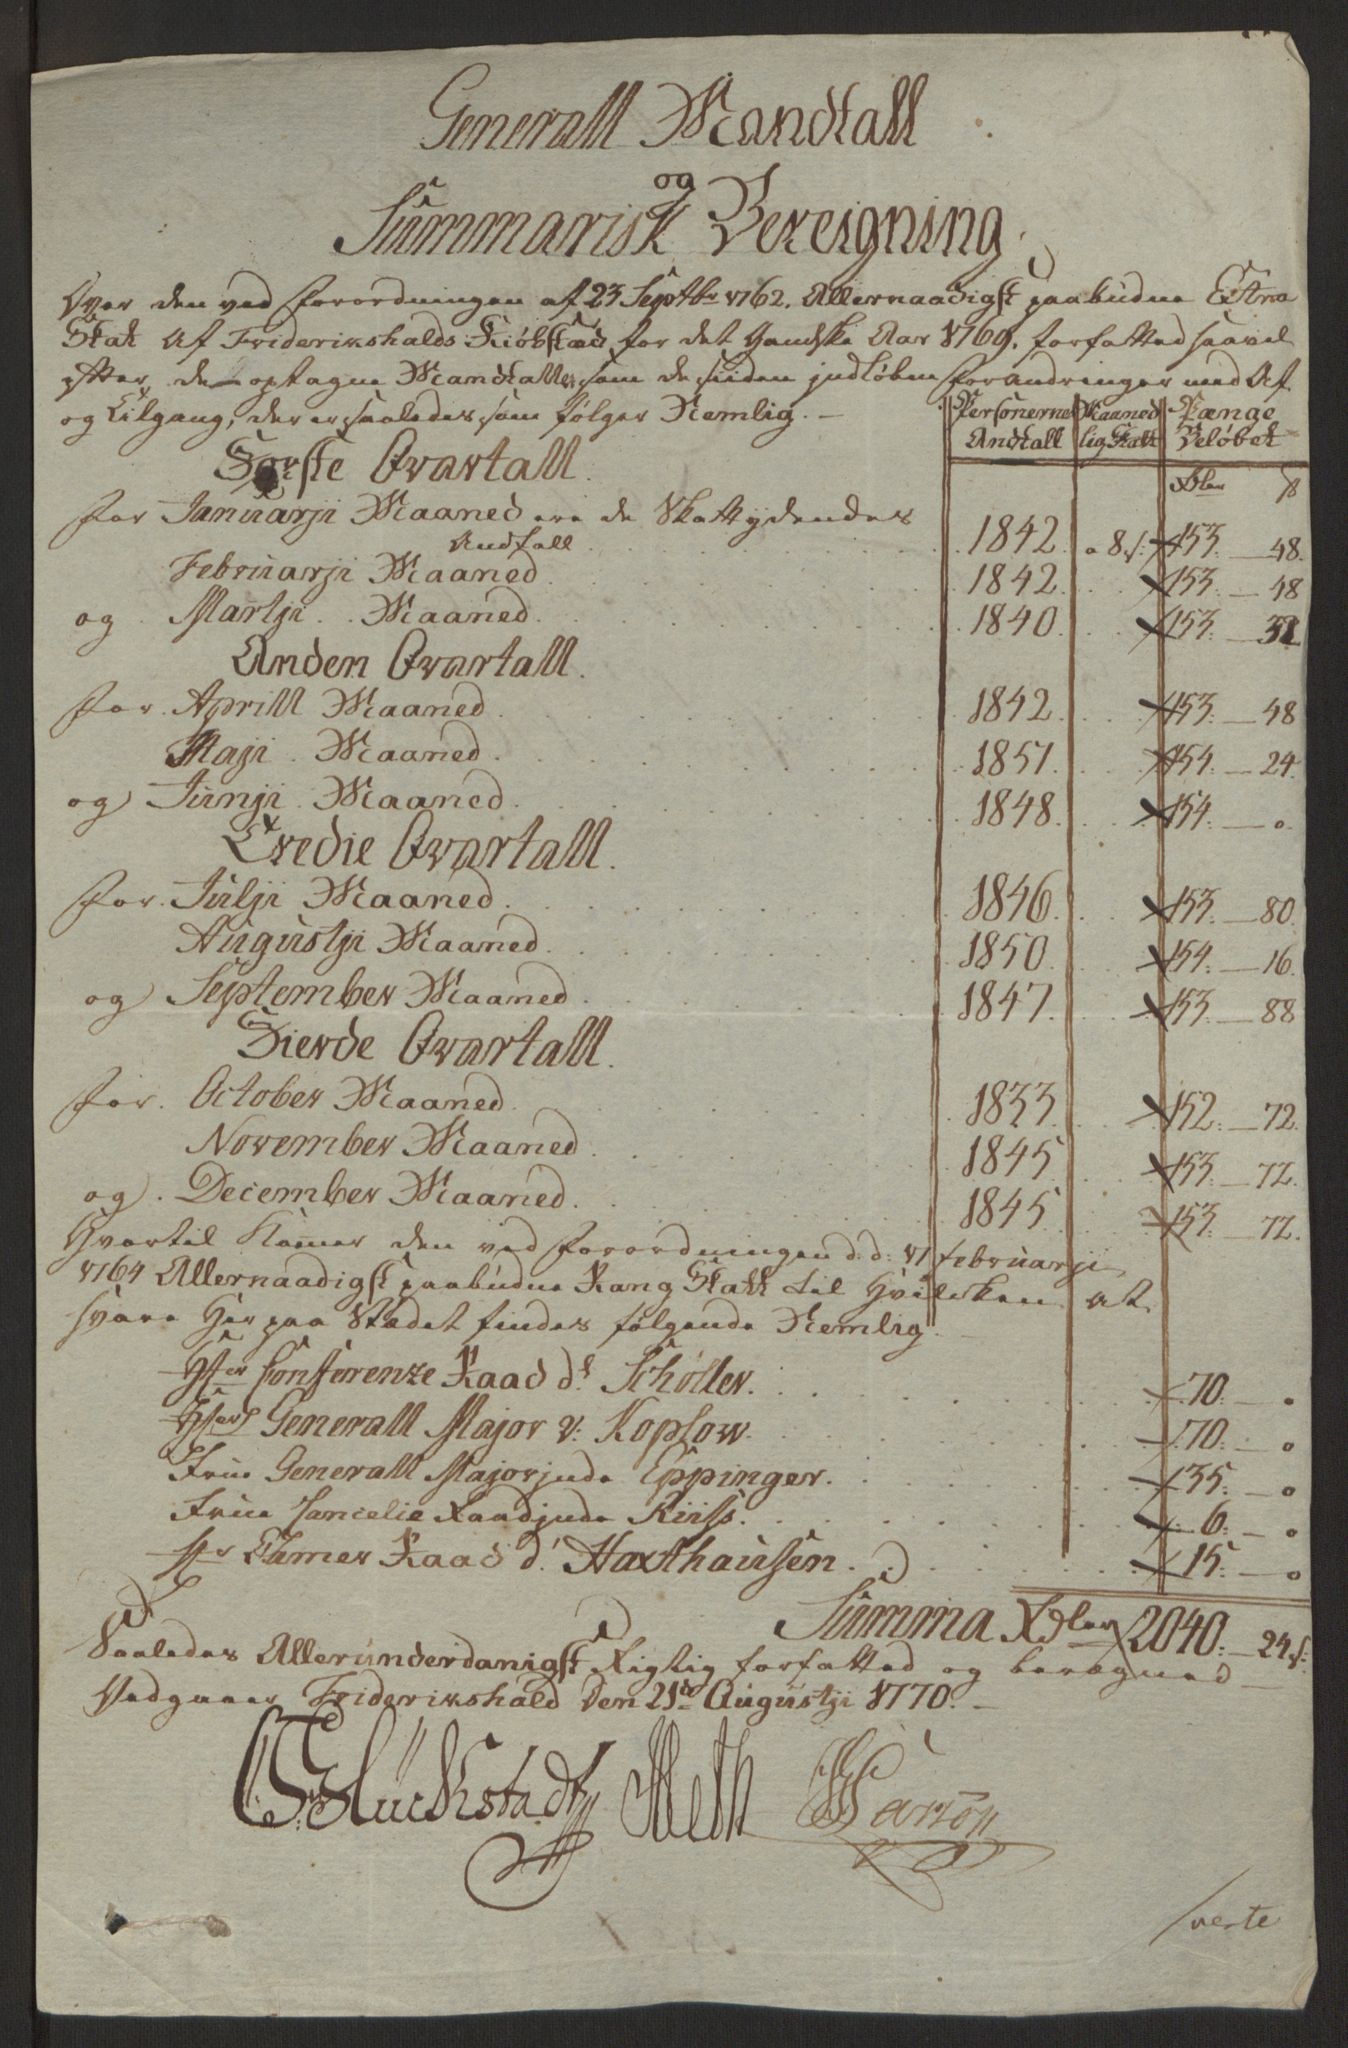 Generall Mandtall
og
Summarisk Bereigning
Over den ved Forordningen af 23 Septbr 1762. Allernaadigst paabudne Extra
Skat Af Friderikshalds Kiøbstæd for det Gandske Aar 1769, forfatted saavel
efter de optagne Mandtaller som de siiden indløbne forandringer med Af
og Tilgang, der er saaledes som følger Nemlig. -
Personernes Maaned Pænge
Andtall lig Skatt Beløbet
Første Qvartall. Rdler ß
for Januarji Maaned ere de Skattydendes
Andtall 1842. a 8 s: 153. 48.
Februarji Maaned 1842. 153. 48
og Martji Maaned. 1840. 153. 32
Anden Qvartall.
for Aprill Maaned. 1842. 153. 48
Maji Maaned. 1851. 154. 24.
og Junji Maaned. 1848. 154. 0.
Tredie Qvartall.
for Julji Maaned. 1846. 153. 80.
Augustji Maaned. 1850. 154. 16.
og September Maaned. 1847. 153. 88
Fierde Qvartall.
for October Maaned. 1833. 152. 72.
November Maaned. 1845. 153. 72.
og December Maaned. 1845. 153. 72.
Hvortil Kommer den ved Forordningen d: d: 17 februarji
1764 Allernaadigst paabudne Rang Skatt til Hvilcken at
svare Her paa Stædet findes følgende Nemlig. -
Hr Conferenze Raad d. Schøller. 70. 0
Hr Generall Major v: Koplow. 70. 0
Frue Generall Majorjnde Eppinger. 35. 0
Frue Cancelie Raadjnde Riiss. 6. 0
Hr Camer Raad d. Haxthausen. 15. 0
Summa Rdler 2040. 24 s:
Saaledes Allerunderdanigst Rigtig forfatted og beregned
Vedgaaer Friderikshald den 21de Augustji 1770. -
Glückstadt Meth Carzon
verte